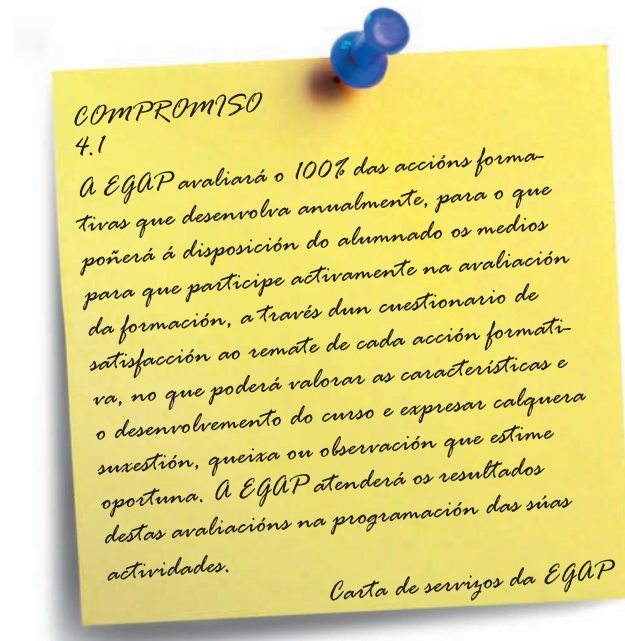 COMPROMISO
4.1
A EGAP avaliará o 100% das accións forma-
tivas que desenvolva anualmente, para o que
poñerá á disposición do alumnado os medios
para que participe activamente na avaliación
da formación, a través dun cuestionario de
satisfacción ao remate de cada acción formati-
va, no que poderá valorar as características e
o desenvolvemento do curso e expresar calquera
suxestión, queixa ou observación que estime
oportuna. A EGAP atenderá os resultados
destas avaliacións na programación das súas
actividades.
Carta de servizos da EGAP